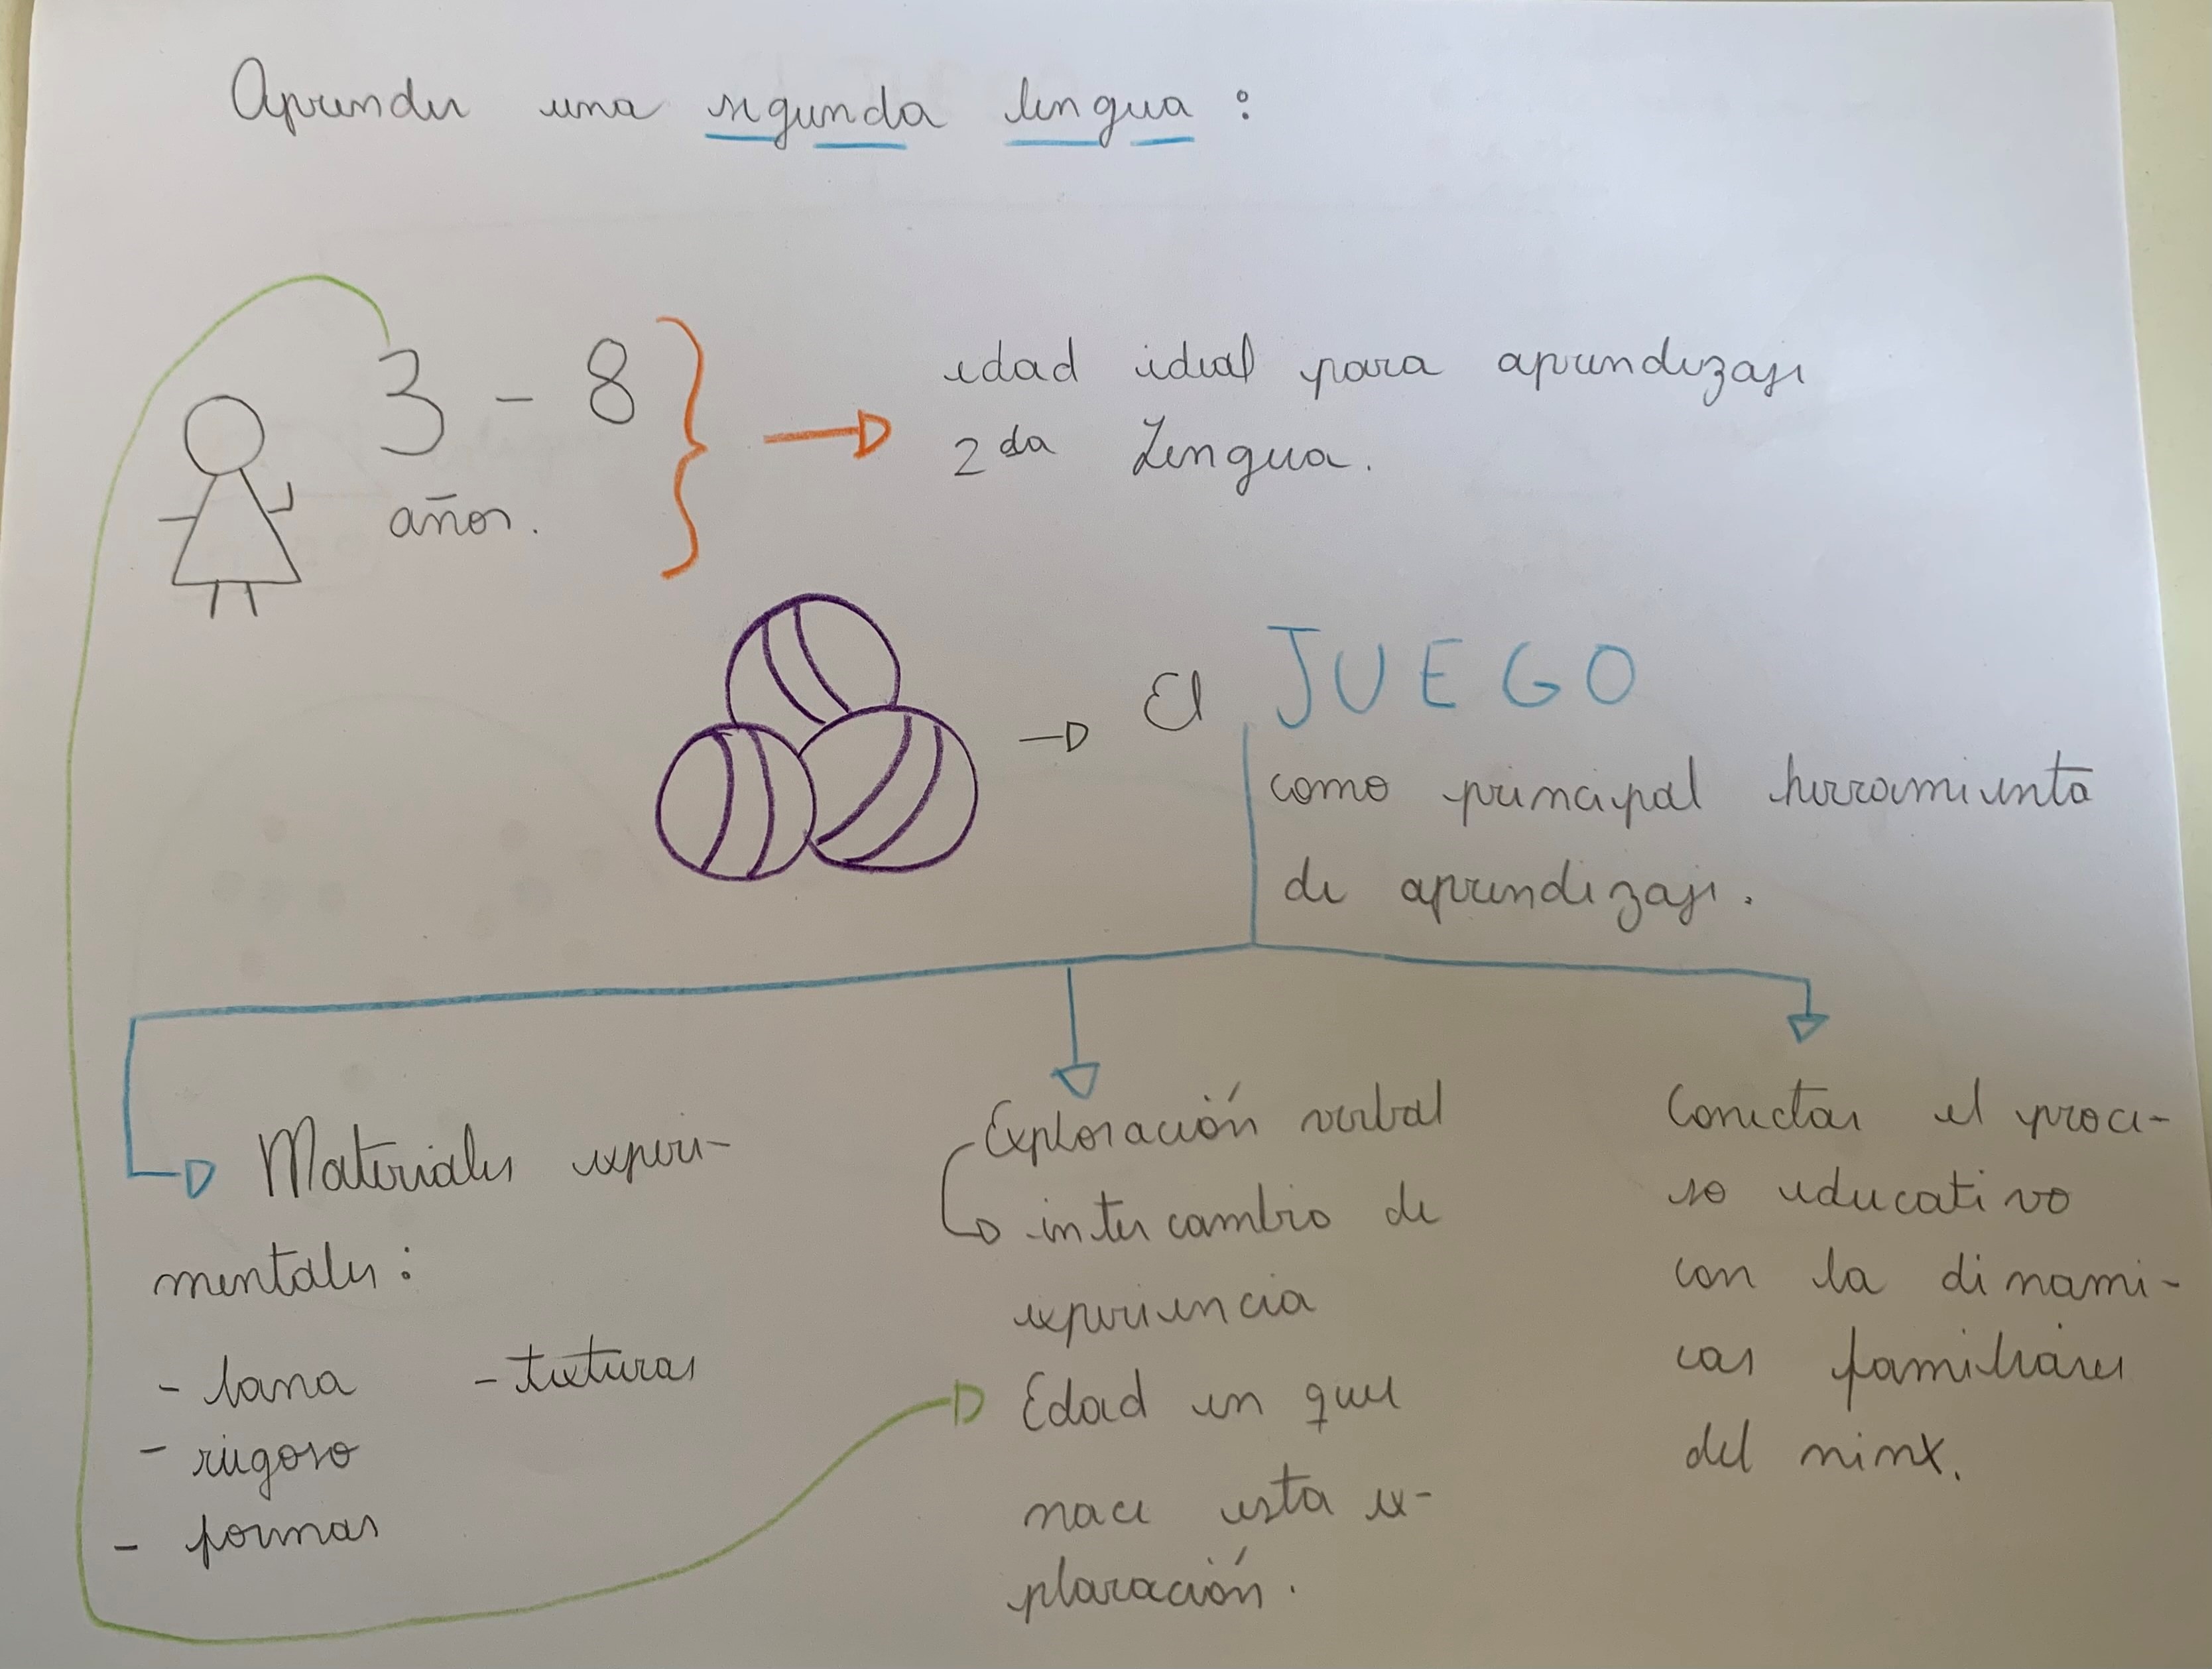 Aprender una segunda lengua:
3 - 8
años.
edad ideal para aprendizaje
2da Lengua.
El JUEGO
como principal herramienta
de aprendizaje.
Materiales experi-
mentales:
- lana - texturas
- rugoso
- formas
Exploración verbal
intercambio de
experiencia
Edad en que
nace esta ex-
ploración.
Conectar el proce-
so educativo
con la dinami-
cas familiares
del ninx.